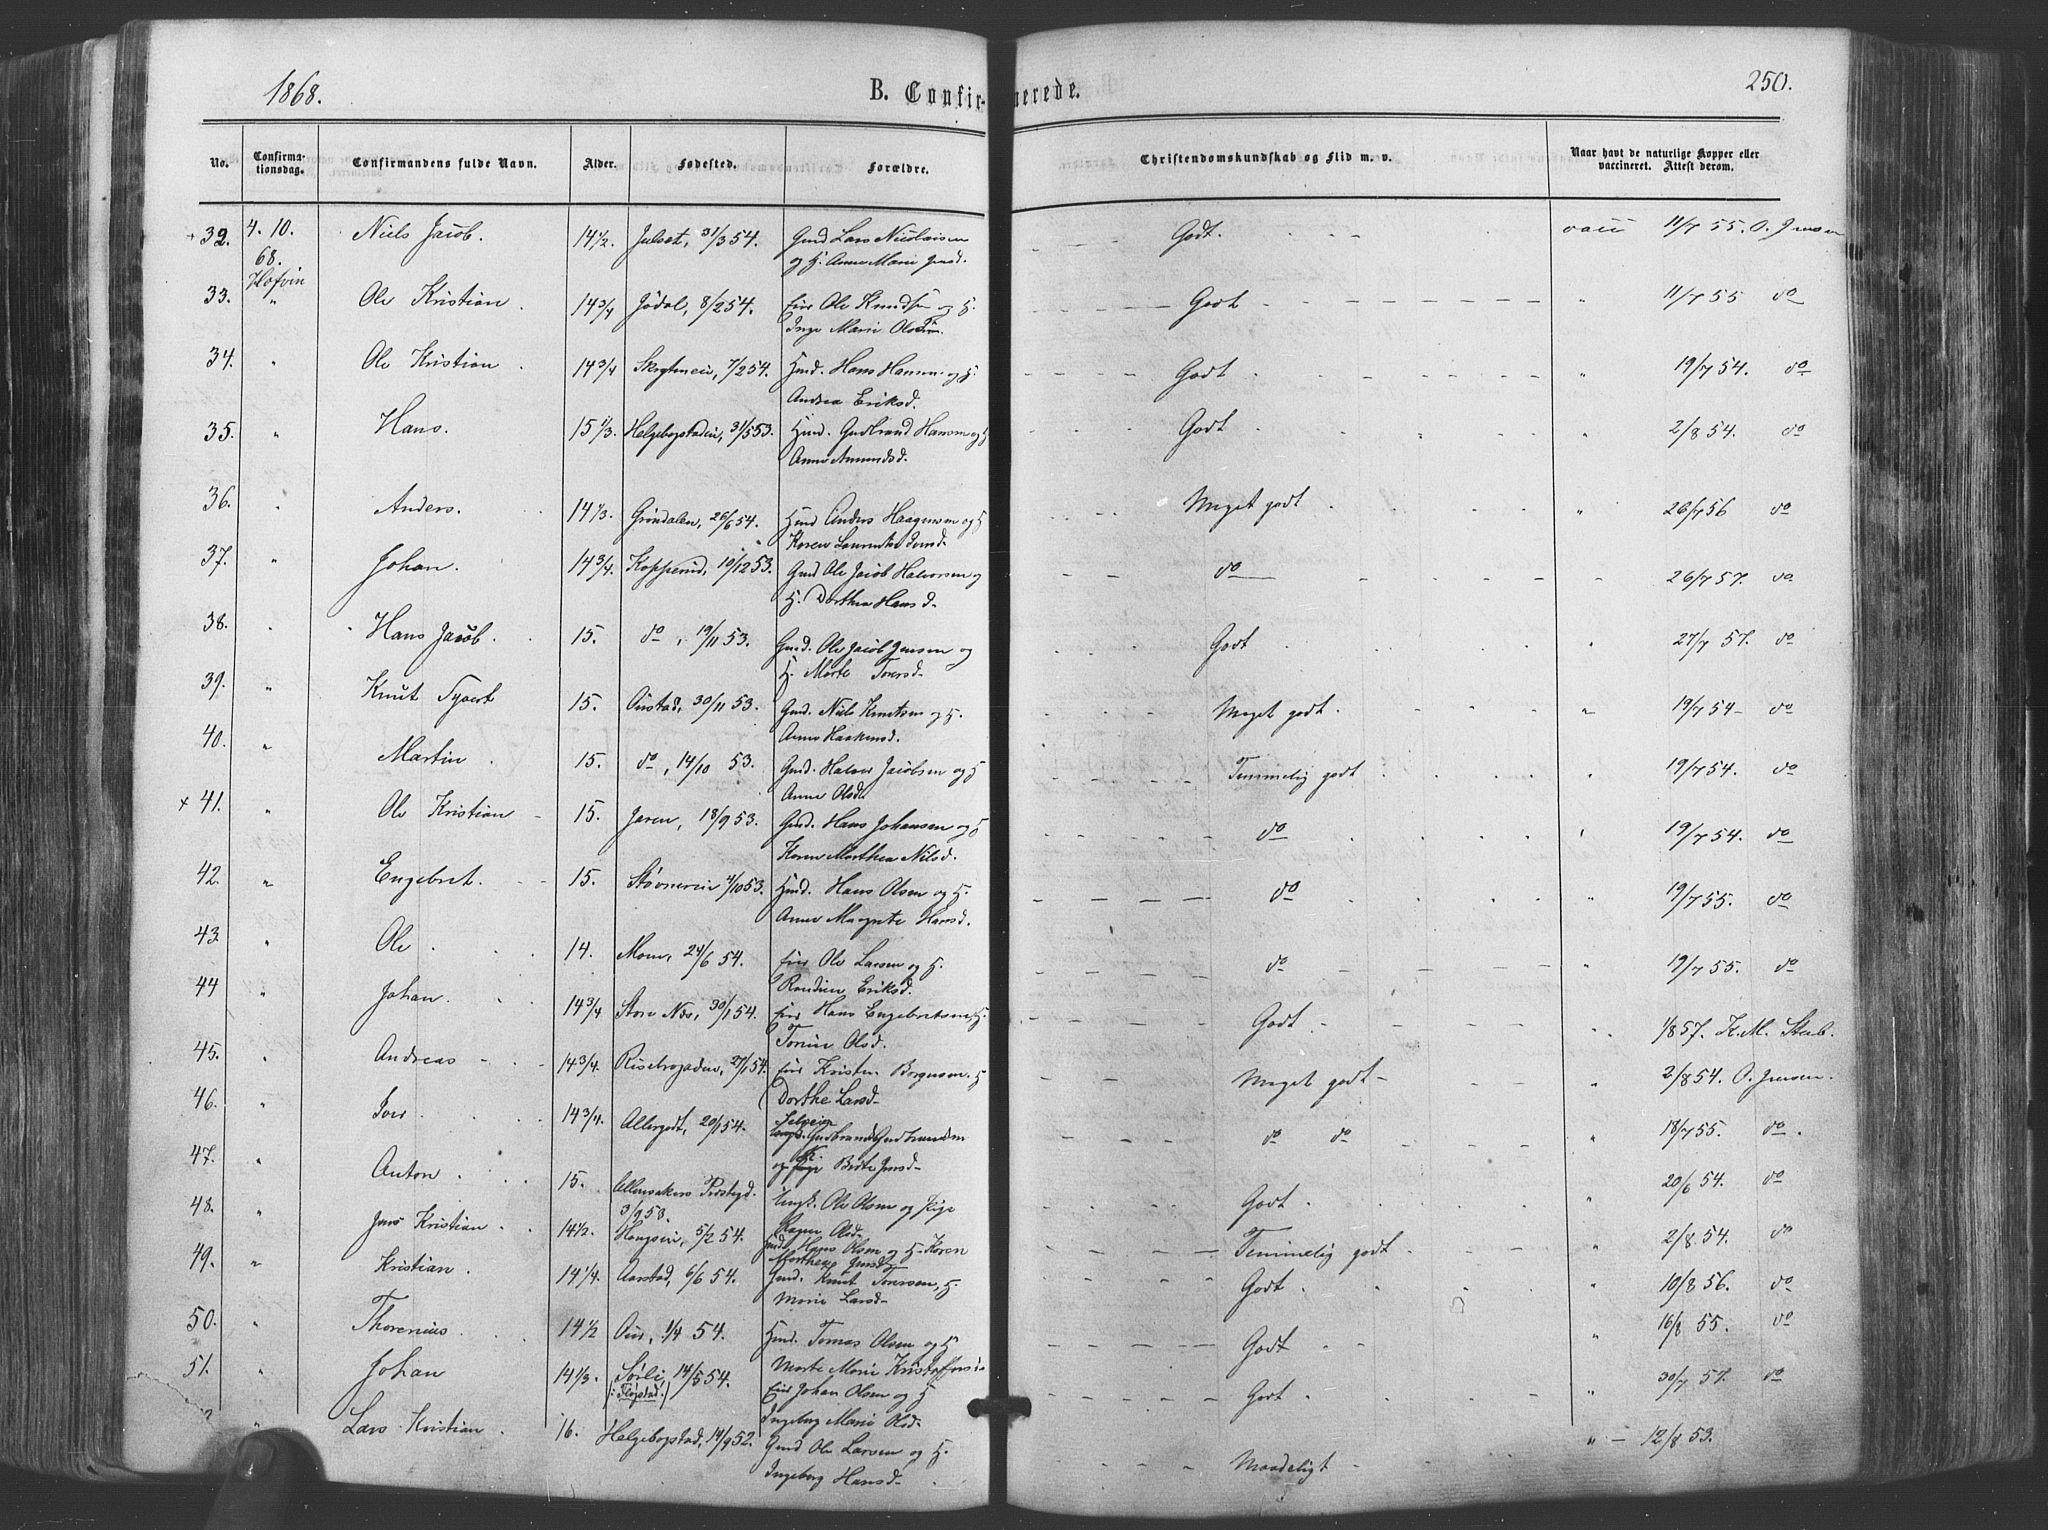 1868. B. Confir- merede. 250.
No. Confirma-tionsdag. Confirmandens fulde Navn. Alder. Fødested. Forældre. Christendomskundskab og Flid m. v. Naar havt de naturlige Kopper eller vaccineret. Attest derom.
+ 32. 4. 10. Niels Jacob. 14 1/2. Julset, 31/3 54. Gmd Lars Nicolaisen Godt. vacc 11/7 55. O. Jensen
68. og H. Anne Marie Jensd.
Hofvin
33. " Ole Kristian. 14 3/4 Jödal, 8/2 54. Eier Ole Knudsen og H. Godt " 11/7 55 do
Inge Marie Olsd.
34. " Ole Kristian. 14 3/4 7/2 54. Hmd. Hans Hansen og H. Godt " 19/7 54. do
Andrea Eriksd.
35. " Hans. 15 1/3. Helgebostadeie, 31/5 53. Hmd. Gudbrand Hansen og H Godt " 2/8 54. do
Anne Amundsd.
36. " Anders. 14 1/3. Gröndalen, 26/6 54. Hmd Anders Haagensen og H Meget godt " 26/7 56 do
Karen Jensd.
37. " Johan. 14 3/4. Kopperud, 10/12 53. Gmd Ole Jacob Halvorsen og do " 26/7 57. do
H. Dorthea Hansd.
38. " Hans Jacob. 15. do, 19/11 53. Gmd. Ole Jacob Jensen og Godt " 27/7 57. do
H. Marte Toersd.
39. " Knut Syvert 15. Onstad, 30/11 53. Gmd. Niels Knutsen og H. Meget godt. " 19/7 54 - do
Anne Haakensd.
40. " Martin. 15. do, 14/10 53. Gmd. Halvor Jacobsen og H Temmelig godt " 19/7 54. do
Anne Olsd.
+ 41. " Ole Kristian - 15. Jaren, 18/9 53. Gmd. Hans Johansen og H do " 19/7 54. do
Karen Marthea Nilsd.
42. " Engebret. 15. Støvnereie 4/10 53. Hmd. Hans Olsen og H. do " 19/7 55. do
Anne Margrete Hansd.
43. " Ole. 14. Moen, 24/6 54. Eier Ole Larsen og H. do " 19/7 55. do
Randine Eriksd.
44 " Johan. 14 3/4 Store Nes, 30/1 54. Eier Hans Engebretsen, H. Godt. " 1/8 57. K. M. Stub.
Torine Olsd.
45. " Andreas - 14 3/4. 27/1 54. Eier Kristen Borgersen. H Meget godt - " 2/8 54. O. Jensen.
Dorthe Larsd-
46. " Iver. 14 3/4. Allergodt, 20/1 54. Selveier Gudbrand Gudbrandsen do do " 18/7 55. do.
og Berte Jensd-
47. " Anton. 15. Ullensakers Præstegd. Ungk. Ole Olsen og Pige Godt. 20/6 54. do
3/9 53. Karen Olsd-
48. " Jens Kristian. 14 1/2. Haugseie, 5/2 54. Hmd. Hans Olsen og H. Karen Temmelig godt. " 2/8. 54. do
Marthea Jensd
49. " Kristian. 14 1/4. Aarstad, 6/6 54. Gmd. Knut Toersen, H. Godt. " 10/8 56. do
Marie Larsd-
50. " Thorenius. 14 1/2 Ouer, 1/4 54. Hmd. Tomas Olsen og H Godt " 16/8 55. do
Marte Marie Kristoffersd
51. " Johan 14 1/3. Sørli, 14/5 54. Eier Johan Olsen og H Godt " 30/7 57. do
Ingeborg Marie Olsd-
" Lars Kristian. 16. Helgebostad, 14/9 52. Gmd Ole Larsen og H. Maadeligt " - 12/8 53.
Ingeborg Hansd-